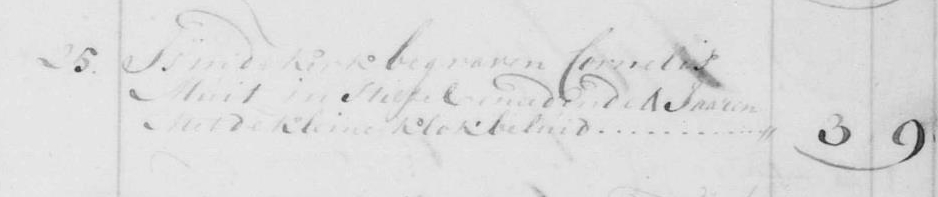 25. Is in de kerk begraven Cornelis
Muis in Steefe Jaaren
Met de kleine klok beluid ............ „ 3 9